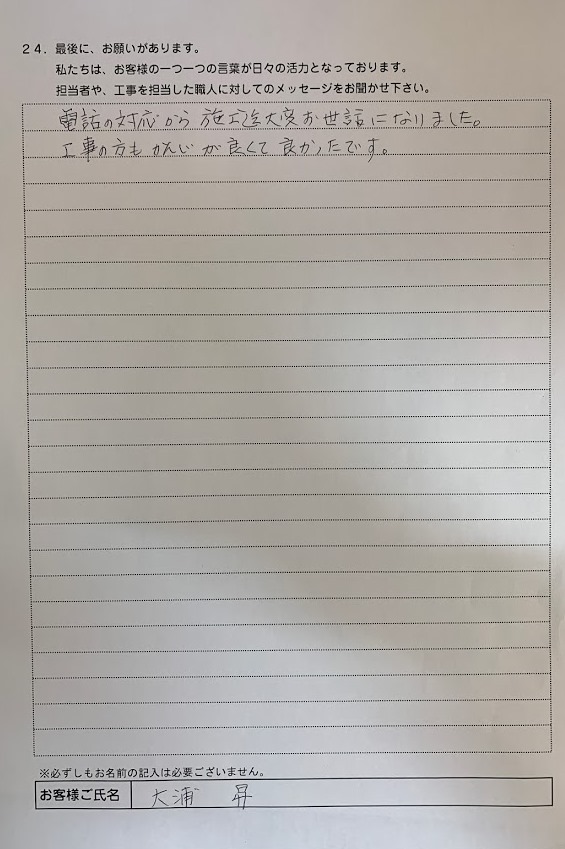 24. 最後に、お願いがあります。
私たちは、お客様の一つ一つの言葉が日々の活力となっております。
担当者や、工事を担当した職人に対してのメッセージをお聞かせ下さい。
電話の対応から施工迄大変お世話になりました。
工事の方もかんじが良くて良かったです。
※必ずしもお名前の記入は必要ございません。
お客様ご氏名 大浦 昇